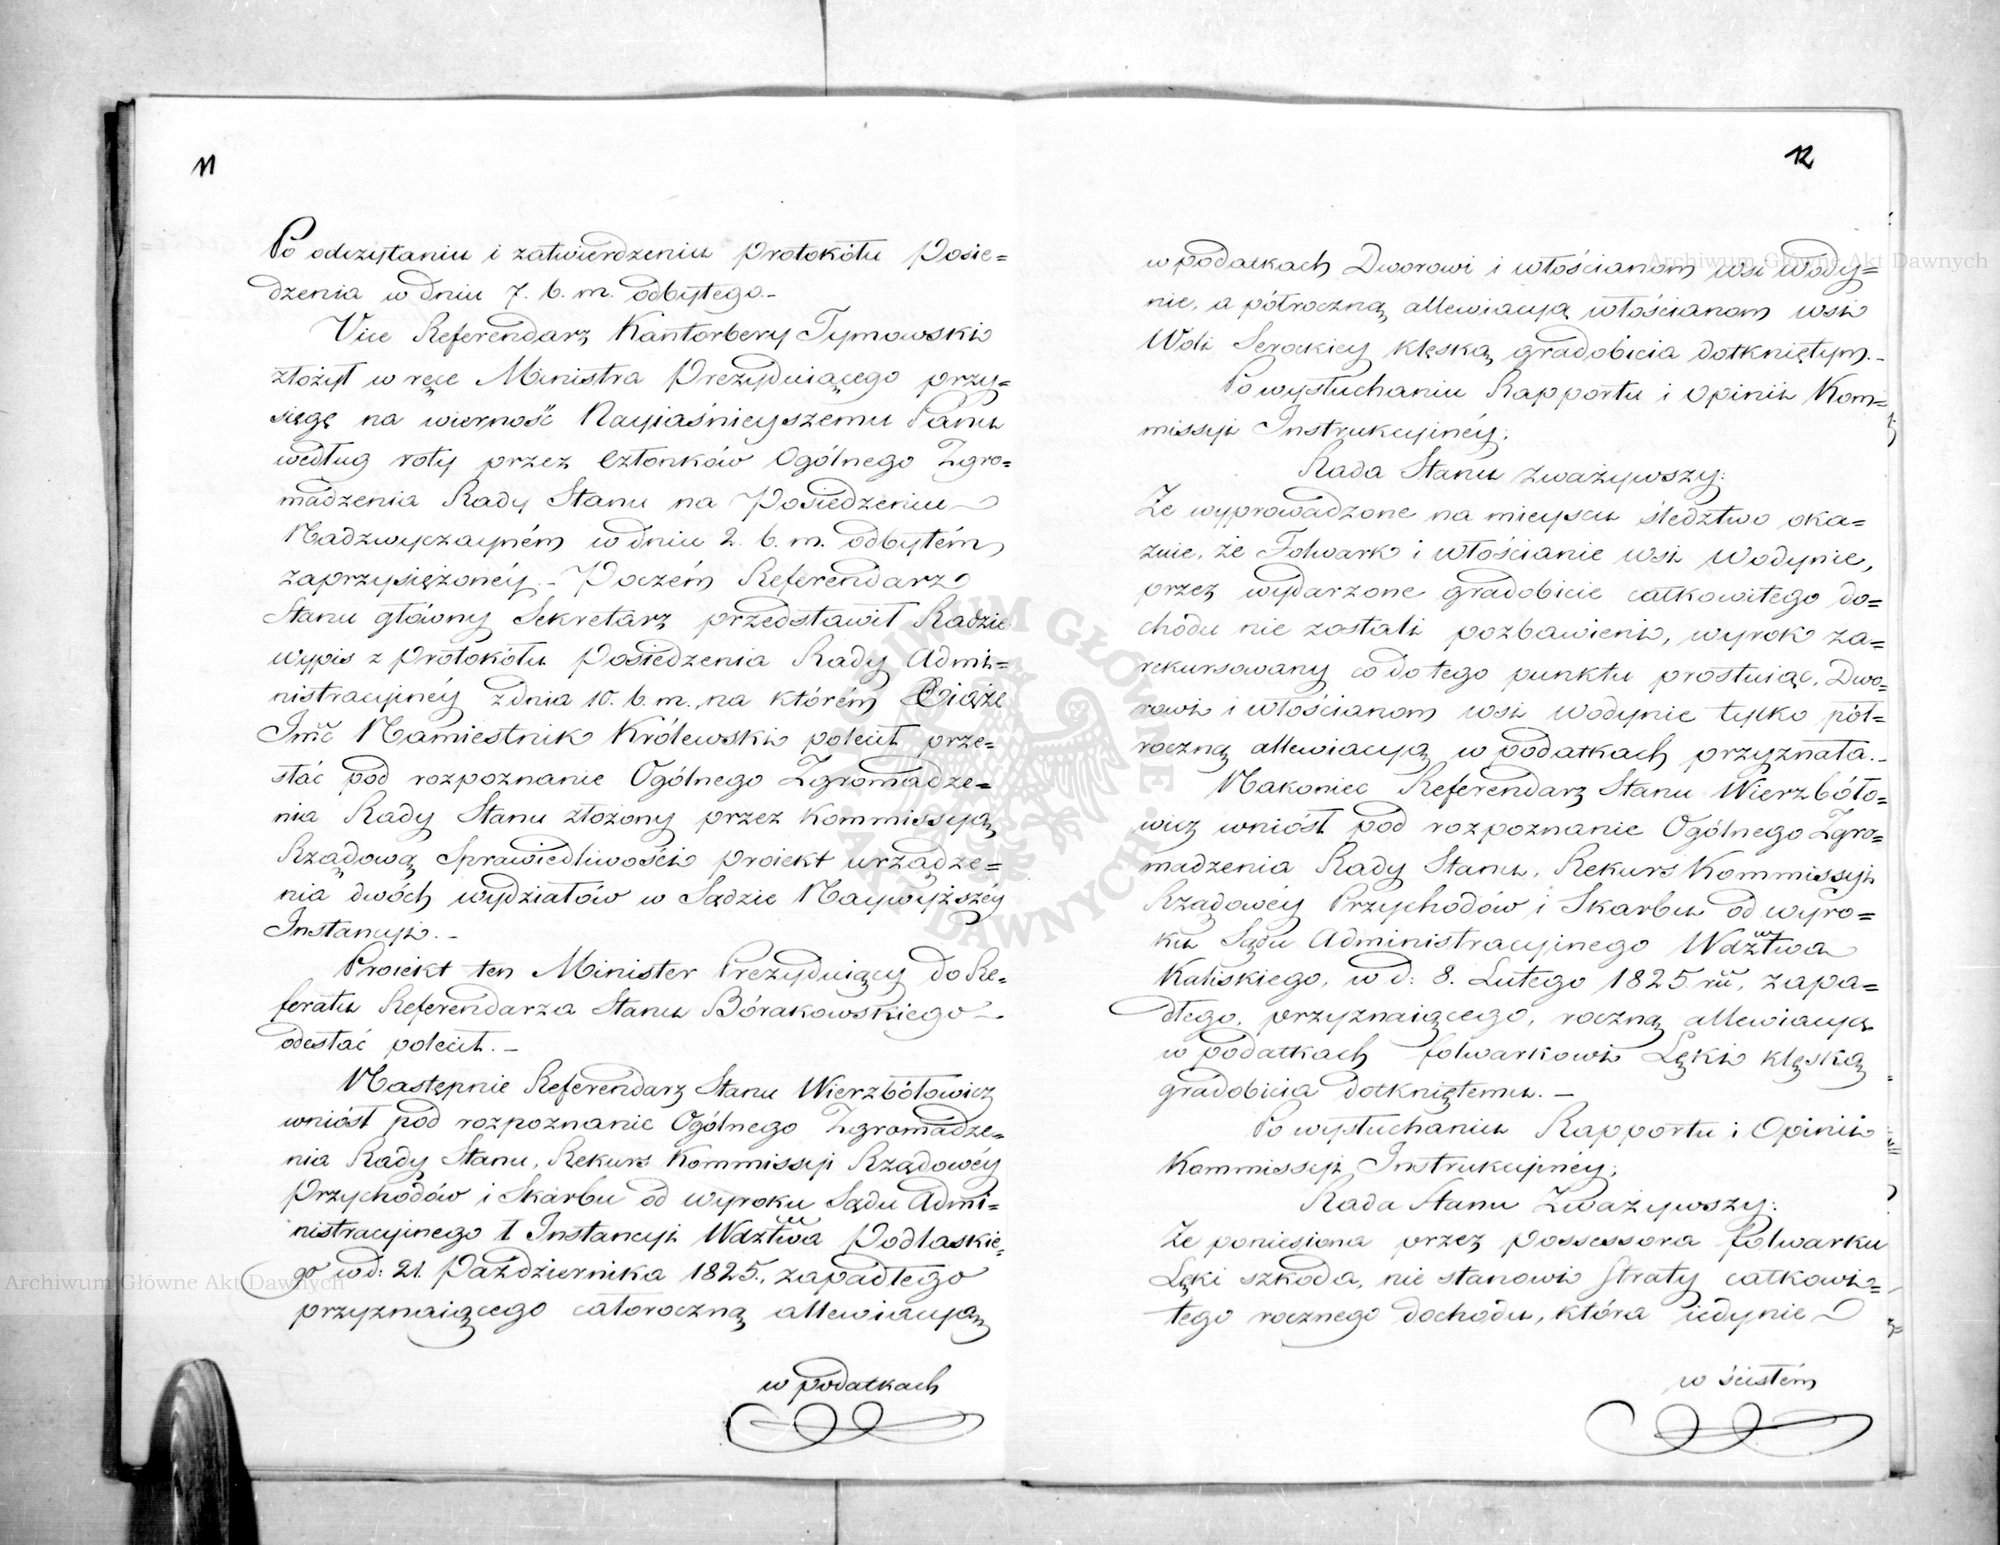 11
Po odczytaniu i zatwierdzeniu Protokółu Posie=
dzenia w dniu 7. b. m. odbytego.-
Vice Referendarz Kantorbery Tymowski
złożył w ręce Ministra Prezyduiącego przy=
sięgę na wierność Nayiaśnieyszemu Panu
według roty przez Członków Ogólnego Zgro=
madzenia Rady Stanu na Posiedzeniu
Nadzwyczayném w dniu 2. b. m. odbytém
zaprzysiężonéy.- Poczém Referendarz
Stanu główny Sekretarz przedstawił Radzie
wypis z Protokółu Posiedzenia Rady Admi=
nistracyjnéy z dnia 10. b. m., na którém Xiąże
Jmć Namiestnik Królewski polecił prze=
słać pod rozpoznanie Ogólnego Zgromadze=
nia Rady Stanu złożony przez Kommissyą
Rządową Sprawiedliwości proiekt urządze=
nia dwóch wydziałów w Sądzie Naywyższéy
Instancyi.-
Proiekt ten Minister Prezyduiący do Re=
feratu Referendarza Stanu Bórakowskiego
odesłać polecił.-
Następnie Referendarz Stanu Wierzbółowicz
wniósł pod rozpoznanie Ogólnego Zgromadze=
nia Rady Stanu, Rekurs Kommissyi Rządowéy
Przychodów i Skarbu od wyroku Sądu Admi=
nistracyjnego 1 Instancyi Wdztwa Podlaskie=
go w d: 21. Października 1825., zapadłego
przyznaiącego całoroczną allewiacyą
w podatkach
12
w podatkach Dworowi i włościanom wsi Wody=
nie, a półroczną allewiacyą włościanom wsi
Woli Serockiey klęską gradobicia dotkniętym.-
Po wysłuchaniu Rapportu i Opinii Kom=
missyi Instrukcyinéy;
Rada Stanu zważywszy:
Że wyprowadzone na mieyscu śledztwo oka=
zuie, że Folwark i włościanie wsi Wodynie,
przez wydarzone gradobicie całkowitego do=
chodu nie zostali pozbawieni, wyrok za=
rekursowany co do tego punktu prostuiąc, Dwo=
rowi i włościanom wsi Wodynie tylko pół=
roczną allewiacyą w podatkach przyznała.-
Nakoniec Referendarz Stanu Wierzbóło=
wicz wniósł pod rozpoznanie Ogólnego Zgro=
madzenia Rady Stanu, Rekurs Kommissyi
Rządowéy Przychodów i Skarbu od wyro=
ku Sądu Administracyjnego Wdztwa
Kaliskiego, w d: 8. Lutego 1825 ru, zapa=
dłego, przyznaiącego, roczną allewiacyą
w podatkach folwarkowi Łęki klęską
gradobicia dotkniętemu.-
Po wysłuchaniu Rapportu i Opinii
Kommissyi Instrukcyinéy;
Rada Stanu Zważywszy:
Że poniesiona przez Possessora Folwarku
Łęki szkoda, nie stanowi straty całkowi=
tego rocznego dochodu, która iedynie
w ścisłém
Archiwum Główne Akt Dawnych
Archiwum Główne Akt Dawnych
Archiwum Główne Akt Dawnych
ARCHIWUM GŁÓWNE AKT DAWNYCH